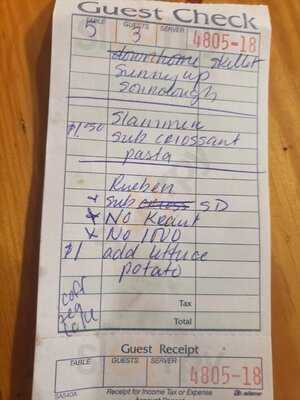 Guest Check
TABLE GUESTS SERVER
5 3 4805-18
down home skillet
Sunny up
Sourdough
Slammer
$1.50 sub croissant
pasta
Rueben
sub SD
x No Kraut
x No 1000
$1 add lettuce
potato
Tax
Total
Guest Receipt
TABLE GUESTS SERVER
4805-18
Receipt for Income Tax or Expense